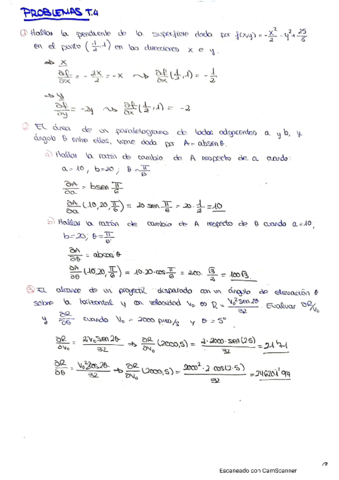 PROBLEMAS T.4
① Hallar la pendiente de la superficie dada por f(x,y) = -x²/2 - y² + 25/8
en el punto (1/2, 1) en las direcciones x e y.
⇒ x
∂f/∂x = -2x/2 = -x ⇝ ∂f/∂x (1/2, 1) = -1/2
⇒ y
∂f/∂y = -2y ⇝ ∂f/∂y (1/2, 1) = -2
② El área de un paralelogramo de lados adyacentes a y b, y
ángulo θ entre ellos, viene dada por A = absenθ.
i) Hallar la razón de cambio de A respecto de a cuando
a = 10, b = 20, θ = π/6
∂A/∂a = bsen π/6
∂A/∂a (10, 20, π/6) = 20 sen π/6 = 20 · 1/2 = 10
ii) Hallar la razón de cambio de A respecto de θ cuando a = 10,
b = 20; θ = π/6
∂A/∂θ = abcosθ
∂A/∂θ (10, 20, π/6) = 10·20·cos π/6 = 200 · √3/2 = 100√3
③ El alcance de un proyectil disparado con un ángulo de elevación θ
sobre la horizontal y con velocidad V₀ es R = V₀² sen 2θ / 32. Evaluar ∂R/V₀
y ∂R/∂θ cuando V₀ = 2000 pies/s y θ = 5°
∂R/∂V₀ = 2V₀ sen 2θ / 32 ⇒ ∂R/∂V₀ (2000, 5) = 2·2000·sen(2·5) / 32 = 21'71
∂R/∂θ = V₀² 2cos 2θ / 32 ⇒ ∂R/∂V₀ (2000, 5) = 2000²·2 cos(2·5) / 32 = 246201'94
Escaneado con CamScanner